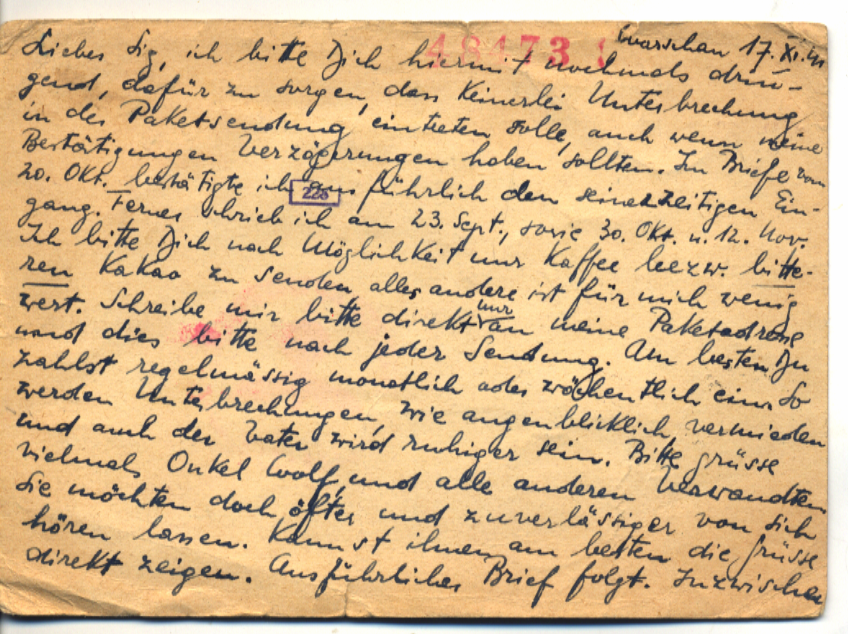 48173
Warschau 17. XI. 41
Liebes Sig, ich bitte Dich hiermit nochmals drin-
gend, dafür zu sorgen, dass keinerlei Unterbrechung
in der Paketsendung eintreten solle, auch wenn meine
Bestätigungen Verzögerungen haben sollten. Im Briefe vom
20. Okt. bestätigte ich ausführlich den seinerzeitigen Ein-
228
gang. Ferner schrieb ich am 23. Sept., sowie 30. Okt. u. 12. Nov.
Ich bitte Dich nach Möglichkeit nur Kaffee beezw. bitte-
ren Kakao zu senden alles andere ist für mich wenig
wert. Schreibe mir bitte direkt nur an meine Paketadresse
und dies bitte nach jeder Sendung. Am besten Du
zahlst regelmässig monatlich oder wöchentlich ein. So
werden Unterbrechungen, wie augenblicklich, vermieden
und auch der Vater wird ruhiger sein. Bitte grüsse
vielmals Onkel Wolf, und alle anderen Verwandten
Sie möchten doch öfter und zuverlässiger von sich
hören lassen. Kannst ihnen am besten die Grüsse
direkt zeigen. Ausführlicher Brief folgt. Inzwischen